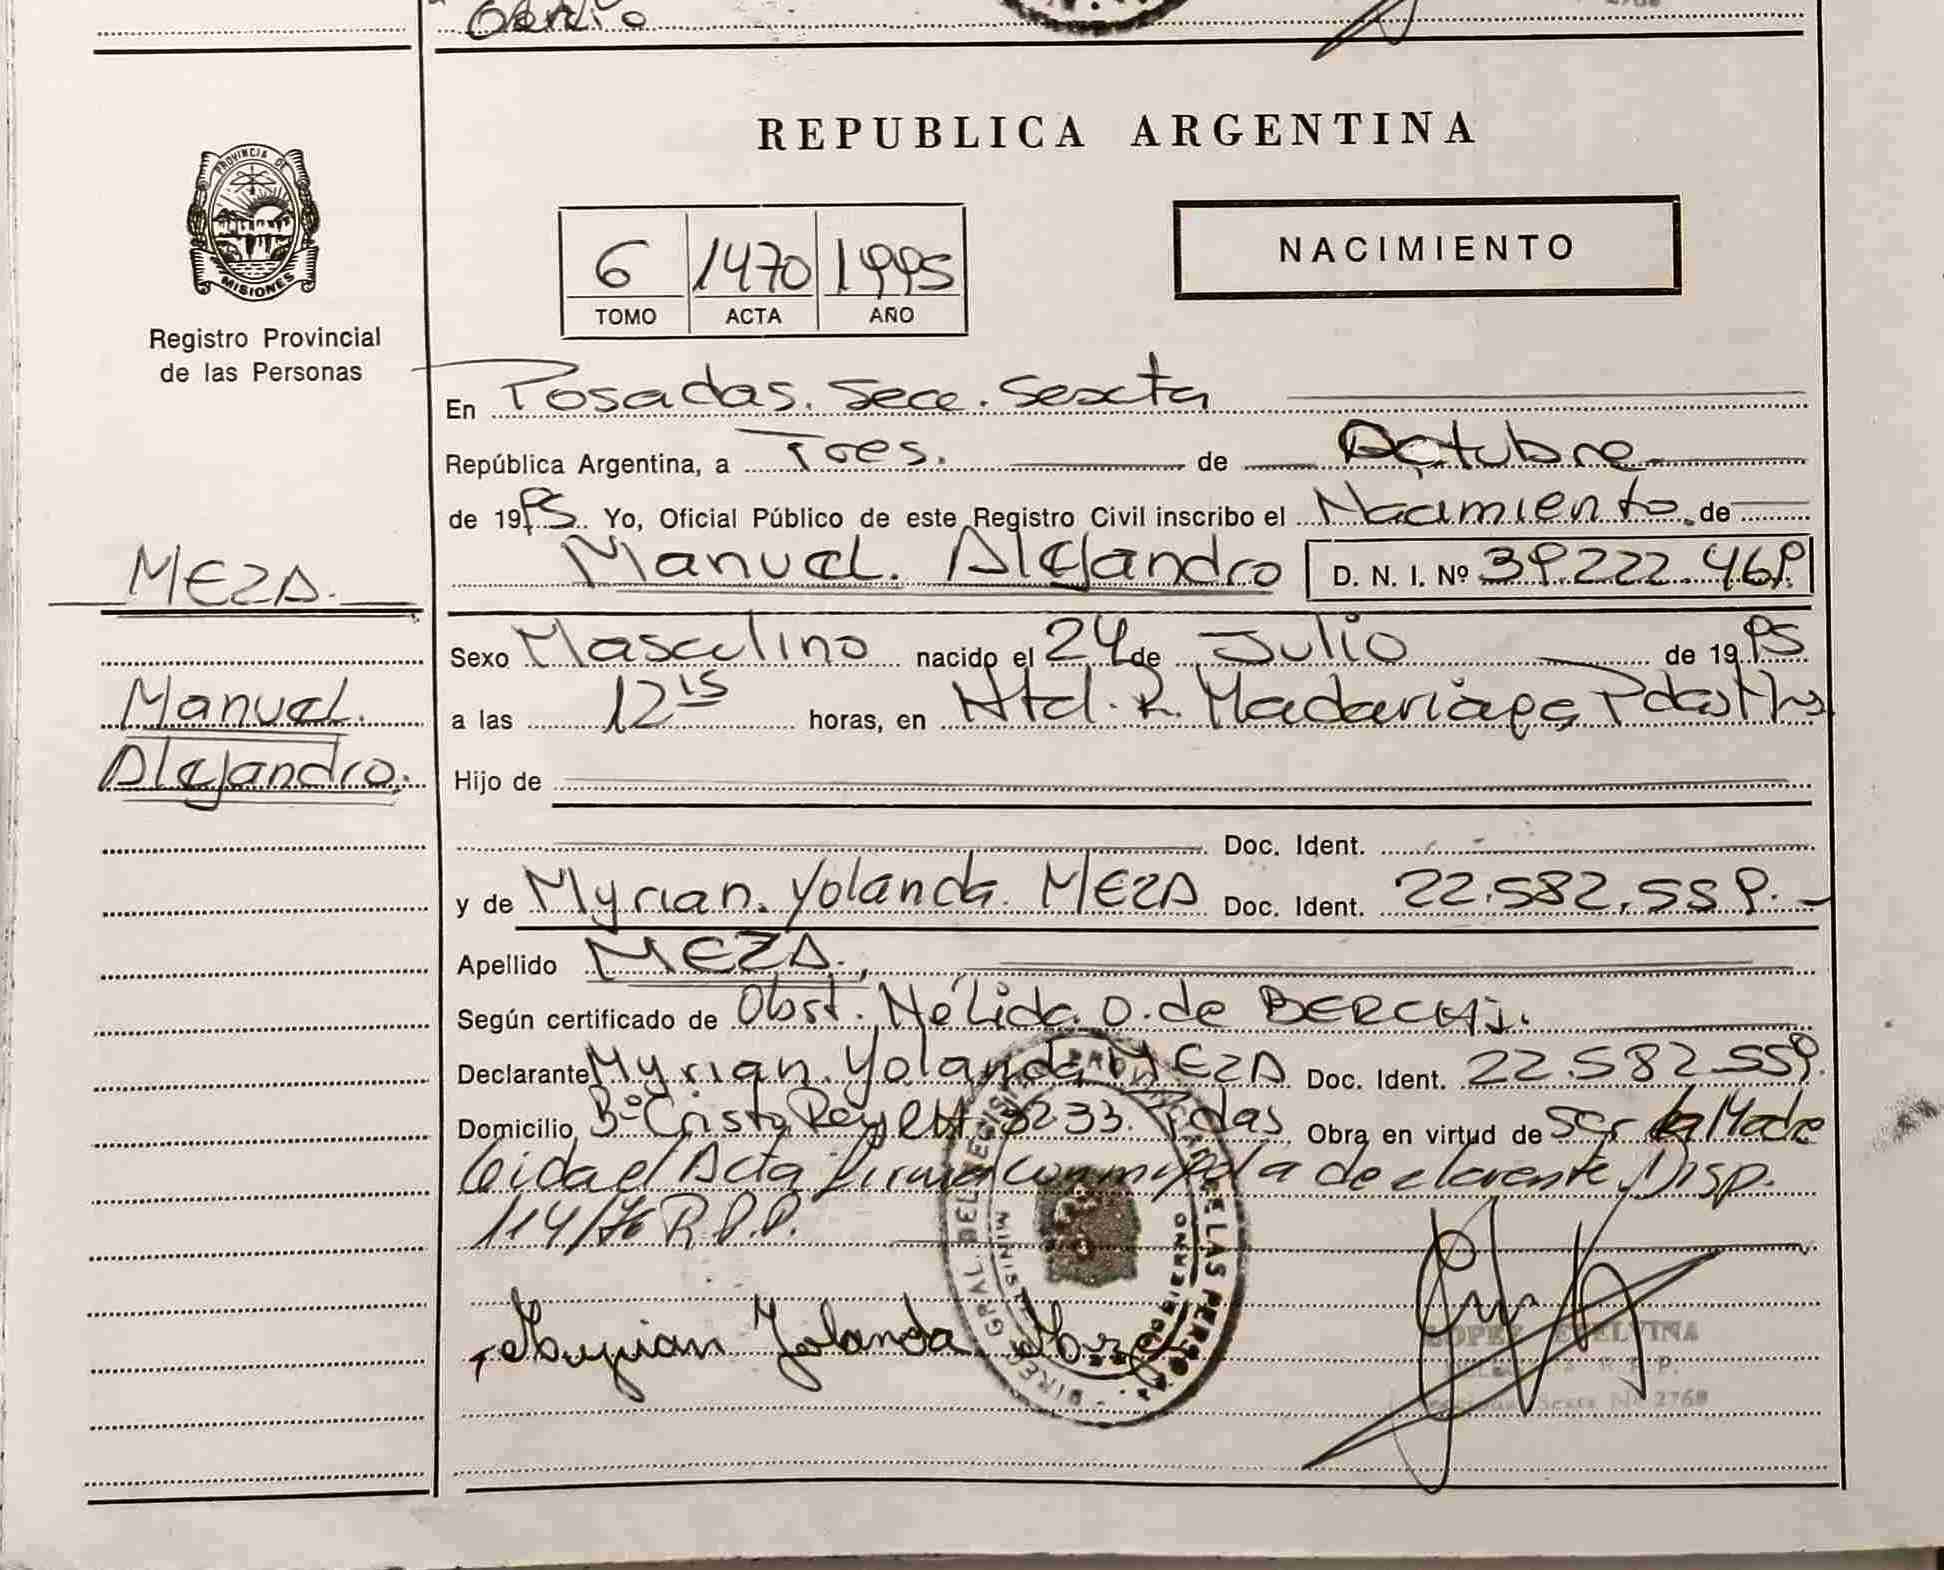 PROVINCIA DE
MISIONES
Registro Provincial
de las Personas
MEZA.
Manuel.
Alejandro.
REPUBLICA ARGENTINA
6 1470 1995
TOMO ACTA AÑO
NACIMIENTO
En Posadas. Secc. Sexta
República Argentina, a Tres. de Octubre
de 1995. Yo, Oficial Público de este Registro Civil inscribo el Nacimiento. de
Manuel. Alejandro D. N. I. Nº 39.222.469.
Sexo Masculino nacido el 24 de Julio de 1995
a las 12 15 horas, en Htal. R. Madariaga, Pdas Mns
Hijo de
Doc. Ident.
y de Myrian. Yolanda. MEZA Doc. Ident. 22.582.559.
Apellido MEZA.
Según certificado de Obst. Nélida O. de BERCHI.
Declarante Myrian. Yolanda MEZA Doc. Ident. 22.582.559.
Domicilio Bº Cristo Rey 3233. Pdas Obra en virtud de ser la Madre
Leida el Acta firma conmigo la declarante. Disp.
114/76 R.P.P.
Myrian Yolanda Meza
LOPEZ ETELVINA
Sexta Nº 2768
DIREC. GRAL. DEL REGISTRO PROVINCIAL DE LAS PERSONAS
MINIST. GOBIERNO